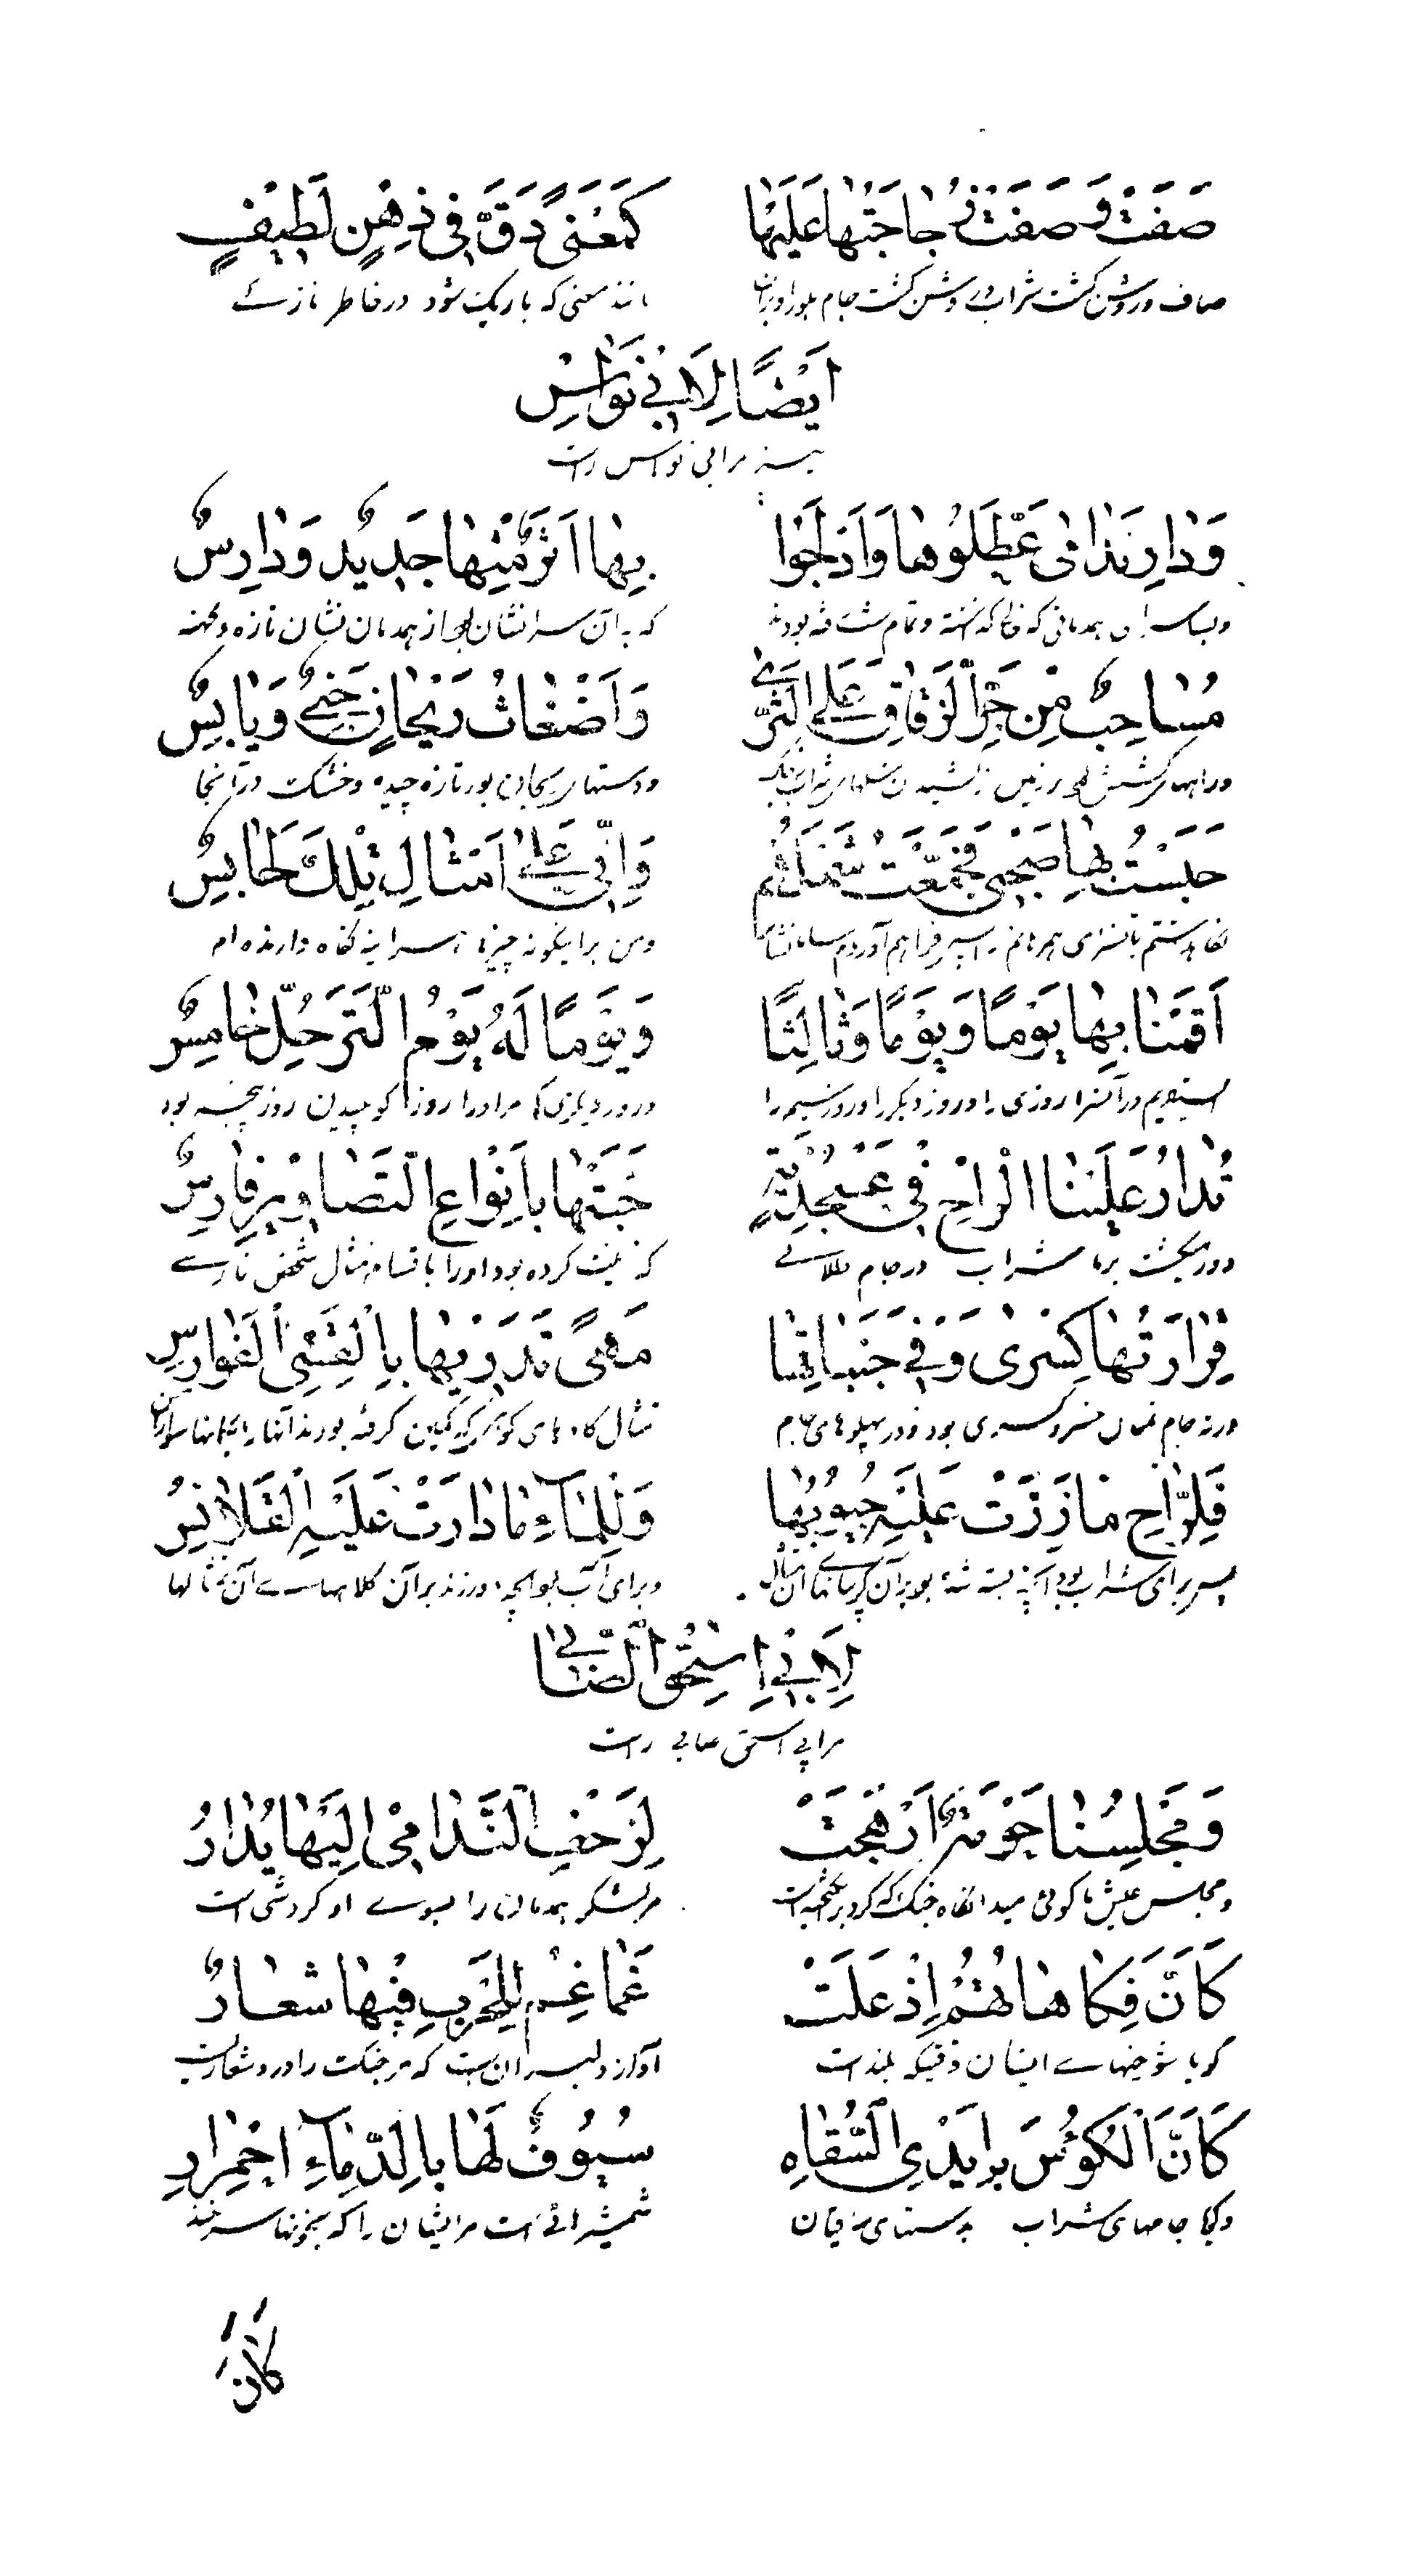 صَفَتْ وَصَفَتْ زُجَاجَتُهَا عَلَيْهَا كَمَعْنًى دَقَّ فِي ذِهْنٍ لَطِيْفٍ
صاف و روشن گشت شراب و روشن گشت جام بلور او بران مانند معنی که باریک شود در خاطر نازکے
اَيْضًا لِاَبِيْ نَوَاسٍ
نیز مر ابی نواس راست
وَدَارِ نَدَامٰى عَطَّلُوهَا وَاَدْلَجُوا بِهَا اَثَرٌ مِّنْهَا جَدِيدٌ وَدَارِسٌ
و بسا سرای همدمانی که خالی گذاشته و تمام شب رفته بودند که بر آن سرا نشان بود از همدمان نشان تازه و کهنه
مَسَاحِبُ مِنْ جَرِّ الزِّقَاقِ عَلَى الثَّرٰى وَاَضْغَاثُ رَيْحَانٍ جَنِيٌّ وَيَابِسٌ
بر زمین از کشیدن و دستهای ریحان بود تازه چیده و خشک در آنجا
حَبَسْتُ بِهَا صَحْبِيْ فَجَمَّعْتُ شَمْلَهُمْ وَاِنِّي عَلٰى اَمْثَالِ تِلْكَ لَحَابِسٌ
نگاه داشتم بانسرای همرهانم را پس فراهم آوردم و من بر اینگونه چیزها نگاه دارنده ام
اَقَمْنَا بِهَا يَوْمًا وَيَوْمًا وَثَالِثًا وَيَوْمًا لَهُ يَوْمُ التَّرَحُّلِ خَامِسٌ
ایستادیم در آنسرا روزی را و روز دیگر را و روز سیم را و روز دیگری که مر او را روز کوچیدن روز پنجم بود
تُدَارُ عَلَيْنَا الرَّاحُ فِي عَسْجَدِيَّةٍ حَبَتْهَا بِاَنْوَاعِ التَّصَاوِيْرِ فَارِسٌ
دور میگشت بر ما شراب در جام طلائے که زینت کرده بود او را باقسام مثال شخص فارسے
قَرَارَتُهَا كِسْرٰى وَفِي جَنَبَاتِهَا مَهًى تَدَّرِيْهَا بِالْقِسِيِّ الْفَوَارِسُ
در ته جام تمثال خسرو کسری بود و در پهلوهای جام مثال گاوهای کوهی که کمین کرده بودند آنها را بکمانها سواران
فَلِلرَّاحِ مَا زُرَّتْ عَلَيْهِ جُيُوْبُهَا وَلِلْمَاءِ مَا دَارَتْ عَلَيْهِ الْقَلَانِسُ
پس برای شراب بود آنچه بسته شده بود بر آن گریبانهای آن و برای آب بود آنچه بر آن کلاههای آن
لِاَبِيْ اِسْحٰقَ الصَّابِيْ
مر ابی اسحق صابی راست
وَمَجْلِسُنَا حَوْمَةٌ اَرْهَجَتْ لِزَحْفِ النَّدَامٰى اِلَيْهَا بِدَارُ
و مجلس عیش ما گوئی میدانگاه جنگ که گرد برانگیخته است مر لشکر همدمان را بسوے او گردشی است
كَاَنَّ فُكَاهَاتِهُمْ اِذْ عَلَتْ غَمَاغِمُ لِلْحَرْبِ فِيْهَا شِعَارٌ
گویا شوخیهاے ایشان وقتیکه بلند است آواز دلیران است که مر جنگ را در و شعاریست
كَاَنَّ الْكُؤُسَ بِاَيْدِي السُّقَاةِ سُيُوْفٌ لَهَا بِالدِّمَاءِ احْمِرَارٌ
و گویا جامهای شراب بدستهای ساقیان شمشیرانی است مر ایشان را که بخونها سرخند
كَاَنَّ